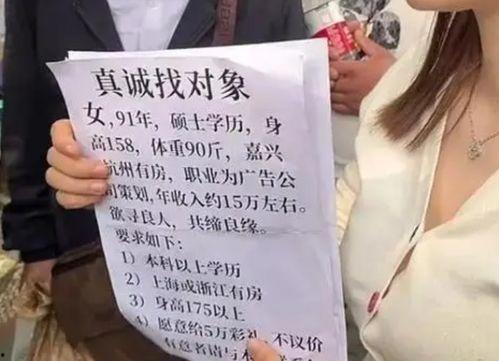 真诚找对象
女,91年，硕士学历，身
高158，体重90斤，嘉兴
杭州有房，职业为广告公
司策划,年收入约15万左右。
欲寻良人，共缔良缘。
要求如下：
1）本科以上学历
2）上海或浙江有房
3）身高175以上
4）愿意给5万彩礼,不议价
有意者请与本